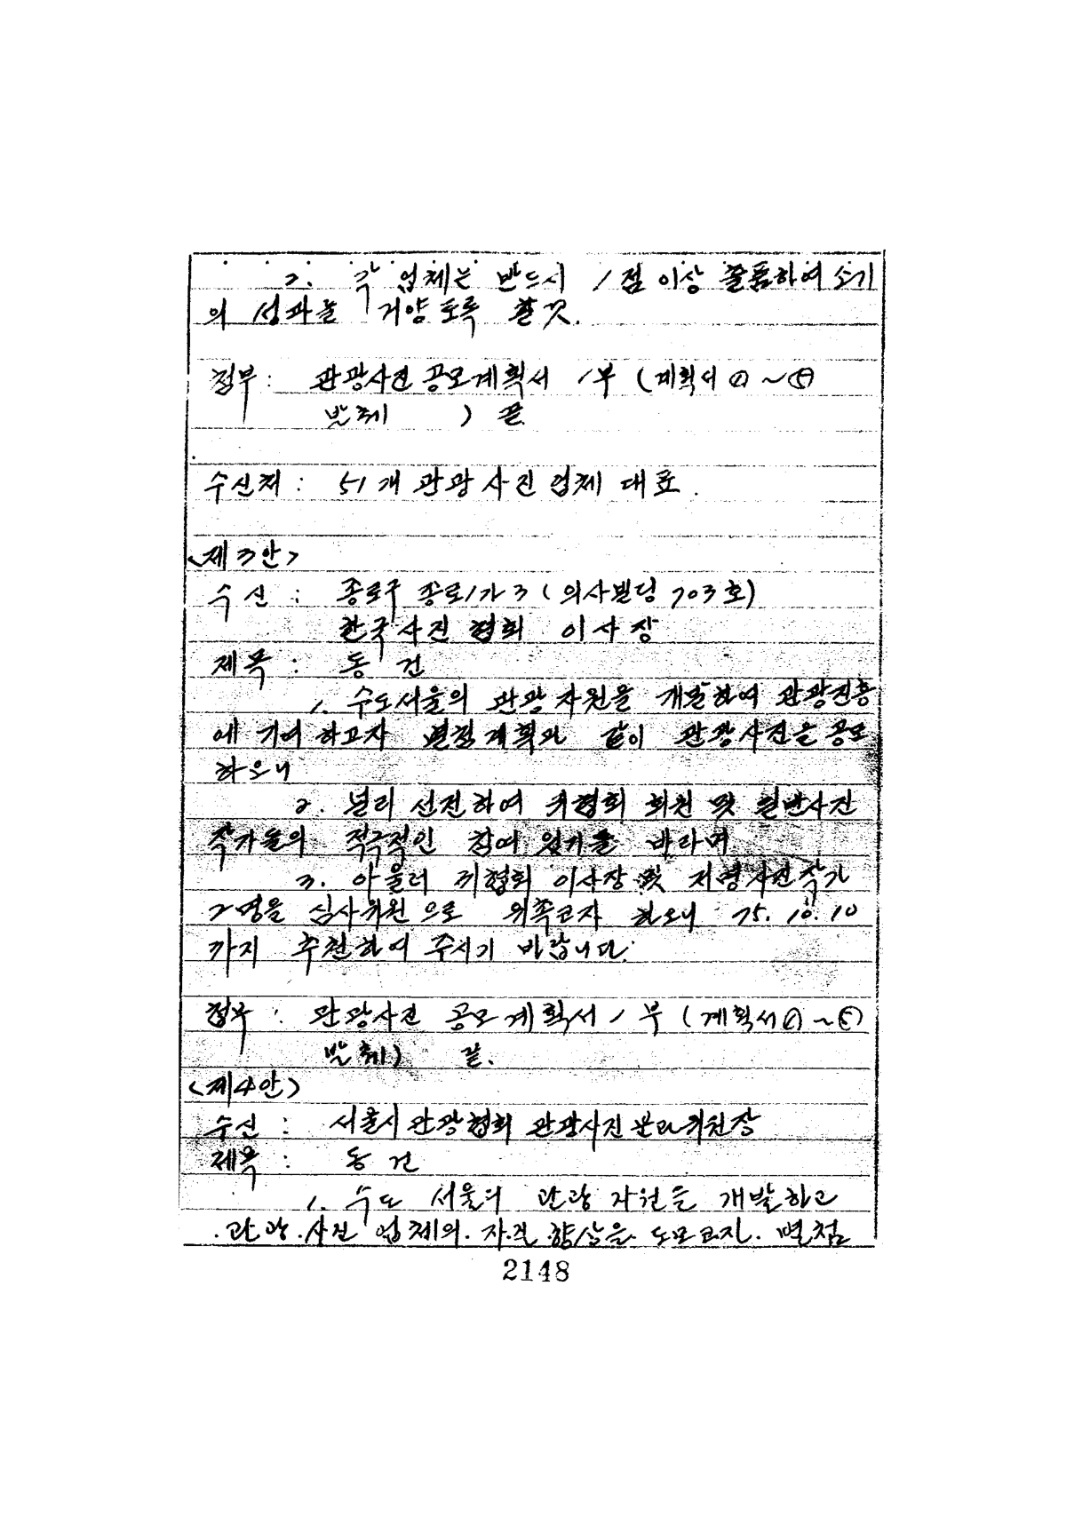 2. 각 업체는 반드시 1점 이상 출품하여 소기
의 성과를 거양토록 할것.
첨부: 관광사진 공모계획서 1부 (계획서 ②~⑤
발췌 ) 끝
수신처: 51개 관광사진 업체 대표.
<제3안>
수신 : 종로구 종로1가 3 (의사빌딩 703호)
한국사진협회 이사장
제목 : 동건
1. 수도서울의 관광자원을 개발하여 관광진흥
에 기여하고자 별첨계획과 같이 관광사진을 공모
하오니
2. 널리 선전하여 귀협회 회원 및 일반사진
작가들의 적극적인 참여 있기를 바라며
3. 아울러 귀협회 이사장 및 저명사진작가
2명을 심사위원으로 위촉코자 하오니 75. 10. 10
까지 추천하여 주시기 바랍니다.
첨부 : 관광사진 공모계획서 1부 (계획서②~⑤
발췌) 끝.
<제4안>
수신 : 서울시관광협회 관광사진분과위원장
제목 : 동건
1. 수도 서울의 관광자원을 개발하고
관광사진 업체의 자질향상을 도모코자 별첨
2148